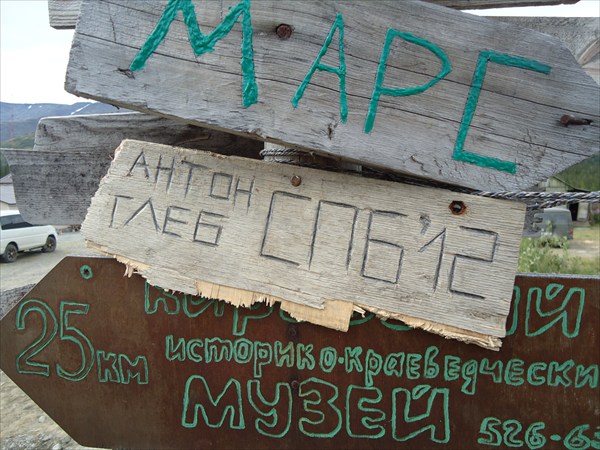 МАРС
АНТОН
ГЛЕБ
СПБ'12
25 км
историко-краеведчески
МУЗЕЙ
526-6